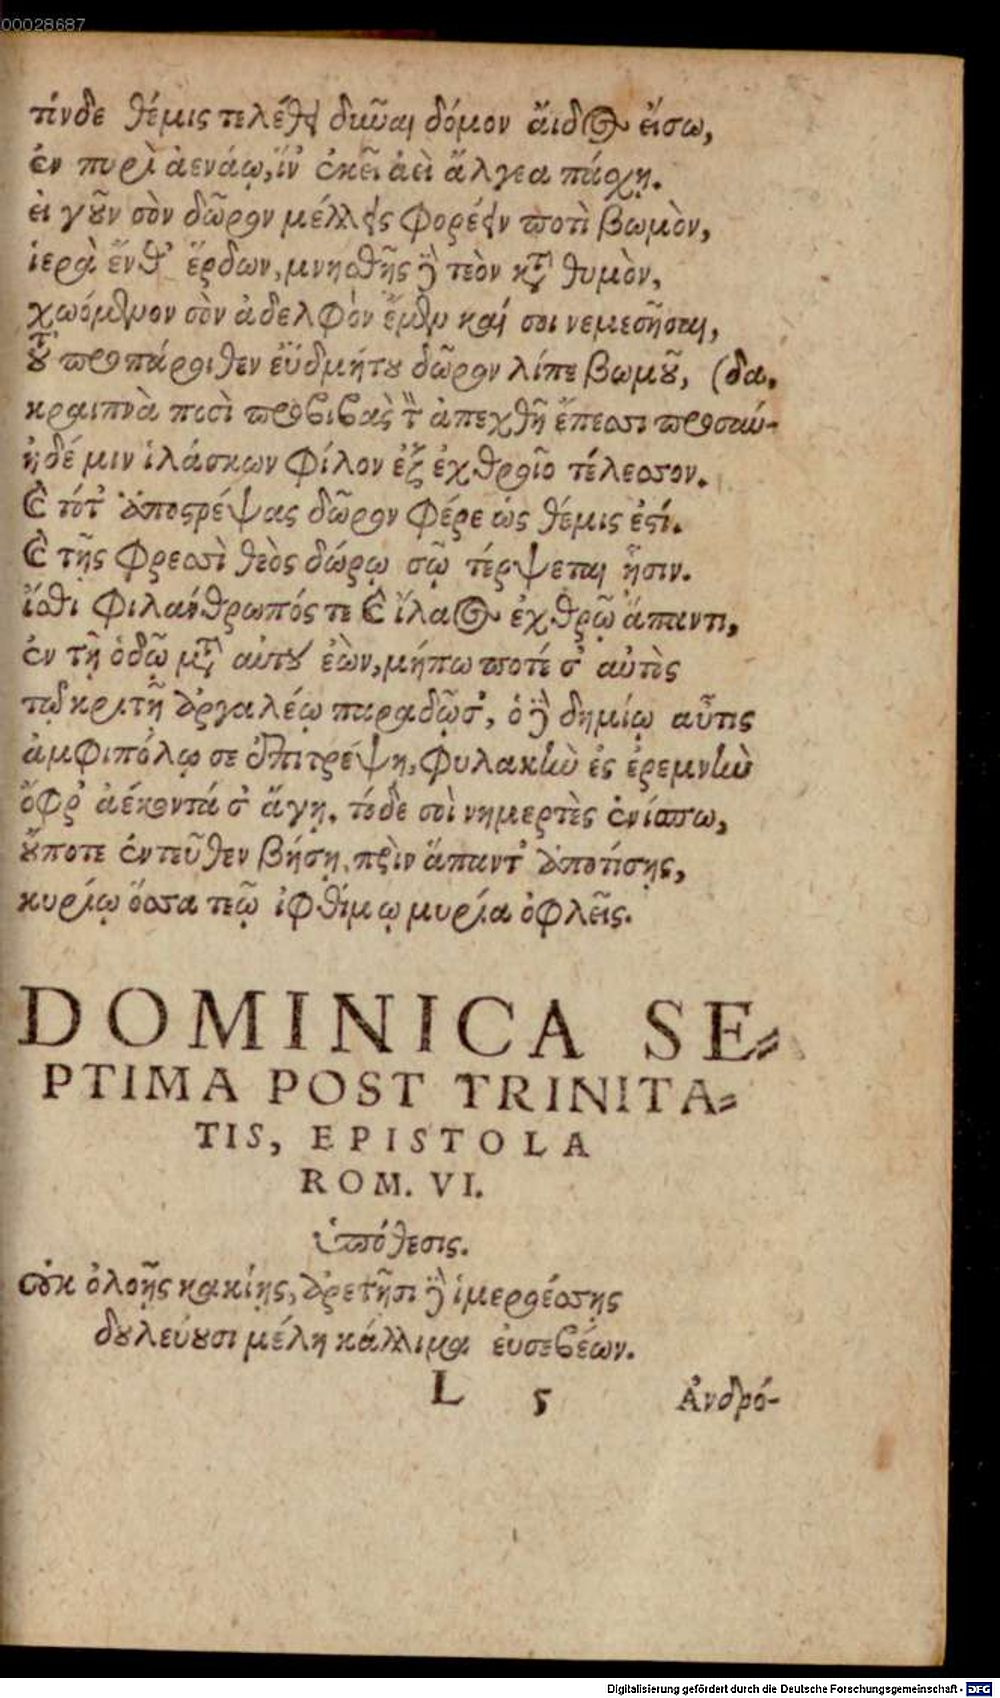 00028687
τίνδε θέμις τελέθει δῦναι δόμον ἄιδος εἴσω,
ἐν πυρὶ ἀενάῳ, ἵν' ἐκεῖ ἀεὶ ἄλγεα πάσχῃ.
εἰ γοῦν σὸν δῶρον μέλλεις φορέειν ποτὶ βωμὸν,
ἱερὰ ἔνθ' ἔρδων, μνησθῇς δὲ τεὸν κατὰ θυμὸν,
χωόμενον σὸν ἀδελφὸν ἔμεν καί σοι νεμεσῆσαι,
τοῦ προπάροιθεν ἐϋδμήτου δῶρον λίπε βωμοῦ, (δα.
κραιπνὰ ποσὶ προβιβὰς τὸν ἀπεχθῆ ἔπεσσι προσαύ-
ἠδέ μιν ἱλάσκων φίλον ἐξ ἐχθροῖο τέλεσσον.
καὶ τότ' ἀποστρέψας δῶρον φέρε ὡς θέμις ἐστί.
καὶ τῇς φρεσσὶ θεὸς δώρῳ σῷ τέρψεται ᾗσιν.
ἴσθι φιλάνθρωπός τε καὶ ἵλαος ἐχθρῷ ἅπαντι,
ἐν τῇ ὁδῷ μετὰ αὐτοῦ ἐὼν, μήπω ποτέ σ' αὐτὸς
τῷ κριτῇ ἀργαλέῳ παραδῷσ', ὁ δὲ δημίῳ αὖτις
ἀμφιπόλῳ σε ἐπιτρέψῃ, φυλακὴν ἐς ἐρεμνὴν
ὄφρ' ἀέκοντά σ' ἄγῃ. τόδε σοὶ νημερτὲς ἐνίσπω,
οὔποτε ἐντεῦθεν βήσῃ, πρὶν ἅπαντ' ἀποτίσῃς,
κυρίῳ ὅσσα τεῷ ἰφθίμῳ μυρία ὀφλεῖς.
DOMINICA SE-
PTIMA POST TRINITA-
TIS, EPISTOLA
ROM. VI.
ὑπόθεσις.
οὐκ ὀλοῇς κακίῃς, ἀρετῇσι δὲ ἱμεροέσσῃς
δουλεύουσι μέλη κάλλιμα εὐσεβέων.
L 5 Ἀνδρό-
Digitalisierung gefördert durch die Deutsche Forschungsgemeinschaft - DFG